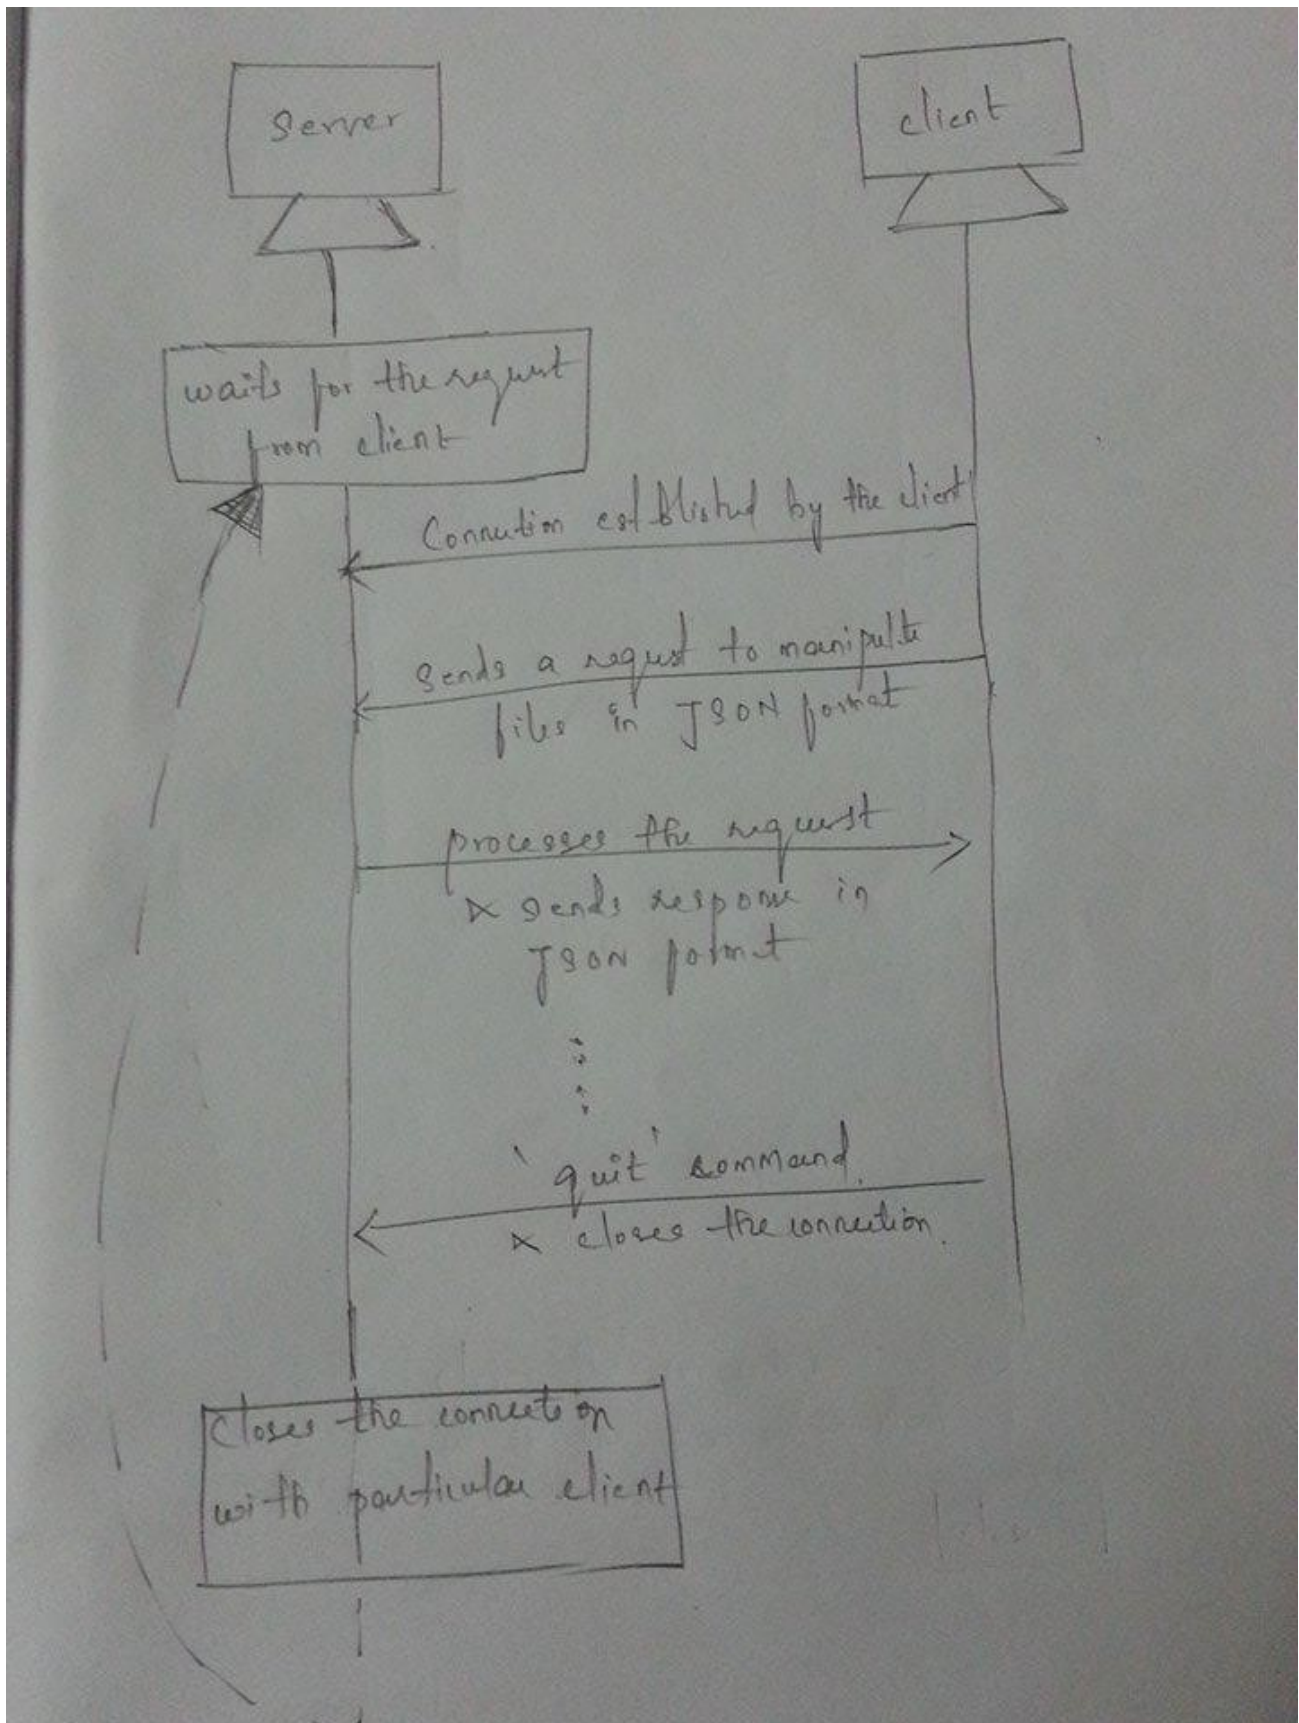 Server
client
waits for the request
from client
Connection established by the client
Sends a request to manipulate
files in JSON format
processes the request
& sends response in
JSON format
'quit' command.
& closes the connection.
Closes the connection
with particular client